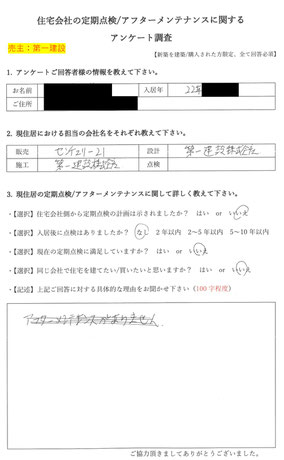 住宅会社の定期点検/アフターメンテナンスに関する
アンケート調査
売主：第一建設
【新築を建築/購入された方限定、全て回答必須】
1. アンケートご回答者様の情報を教えて下さい。
お名前 入居年 22年
ご住所
2. 現住居における担当の会社名をそれぞれ教えて下さい。
販売 センチュリー21 設計 第一建設株式会社
施工 第一建設株式会社 点検
3. 現住居の定期点検/アフターメンテナンスに関して詳しく教えて下さい。
・【選択】住宅会社側から定期点検の計画は示されましたか？ はい or いいえ
・【選択】入居後に点検はありましたか？ なし 2年以内 2～5年以内 5～10年以内
・【選択】現在の定期点検に満足していますか？ はい or いいえ
・【選択】同じ会社で住宅を建てたい/買いたいと思いますか？ はい or いいえ
・【記述】上記ご回答に対する具体的な理由をお聞かせ下さい（100字程度）
アフターメンテナンスがありません
ご協力頂きましてありがとうございました。